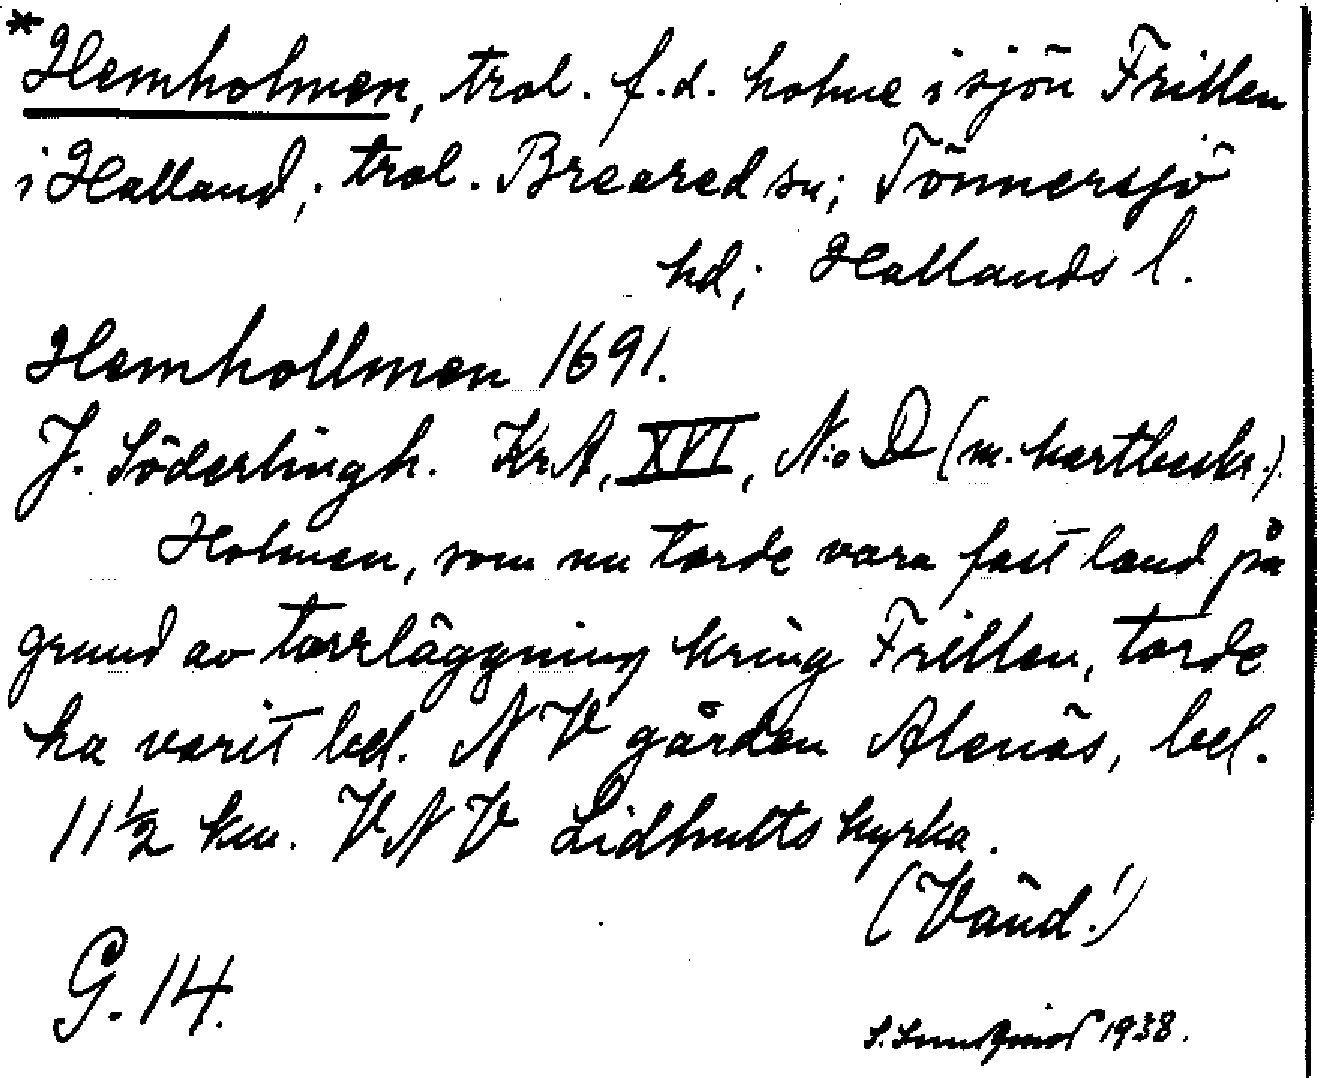 *Hemholmen, trol. f.d. holme i sjön Frillen
i Halland; trol. Breared sn; Tönnersjö
hd; Hallands l.
Hemhollmen 1691.
J. Söderlingh. KrA, XVI, N:o D (m. kartbeskr.)
Holmen, som nu torde vara fast land på
grund av torrläggning kring Frillen, torde
ha varit bel. NV gården Alenäs, bel.
11½ km. VNV Lidhults kyrka.
(Vänd!)
G. 14.
1938.